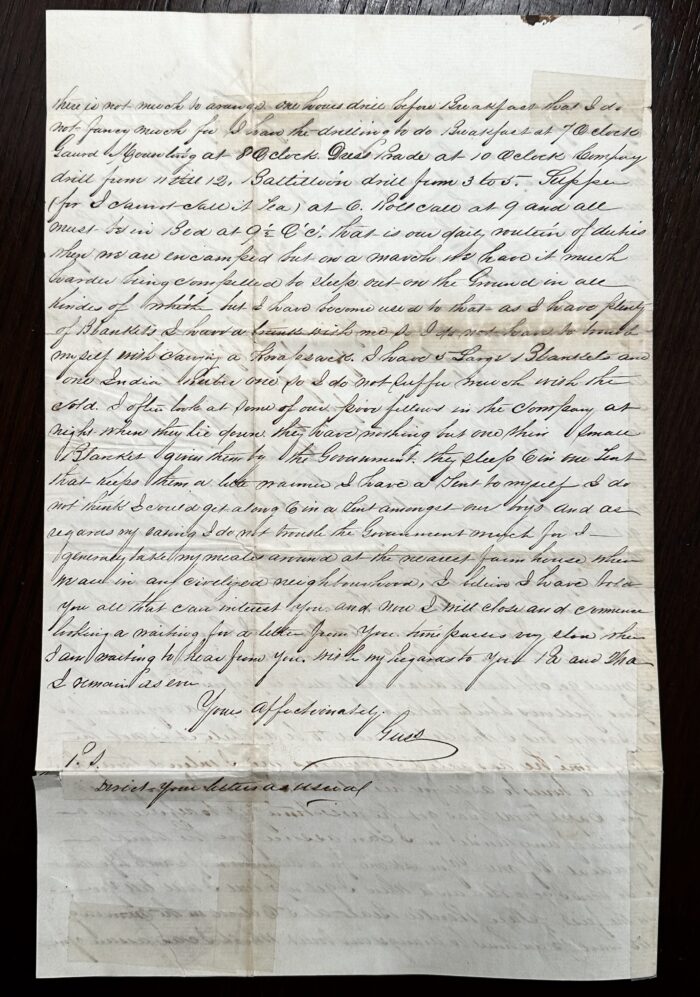 there is not much to arange one hours drill before Breakfast that I do
not fancy much for I have the drilling to do Breakfast at 7 OClock
Gaurd Mounting at 8 OClock Dress Prade at 10 OClock Company
drill from 11 till 12. Battillion drill from 3 to 5. Supper
(for I cannot Call it Tea) at 6. Roll Call at 9 and all
must be in Bed at 9½ O'C'. that is our daily routein of duties
when we are encamped but on a march we have it much
harder being compelled to sleep out on the Ground in all
kindes of but I have become used to that as I have plenty
of Blankets I have a trunk with me so I do not have to
myself with carrying a Knapsack. I have 3 Large Blankets and
one India Rubber one so I do not suffer much with the
Cold. I often look at some of our poor fellows in the Company at
night when they lie down. they have nothing but one thin small
Blanket given them by the Government. they sleep 6 in one Tent
that keeps them a little warmer I have a Tent to myself I do
not think I could get along 6 in a Tent amongst our boys and as
regards my eating I do not trouble the Government much for I
generally take my meales around at the nearest farm house when
we are in any civelized neighbourhood, I beleive I have told
you all that can interest you and now I will close and commence
looking a waiting for a letter from You. time passes very slow when
I am waiting to hear from you. with my regards to your Pa and Ma
I remain as ever
Yours Affectionately.
Guss
P.S.
Direct your letters as usual